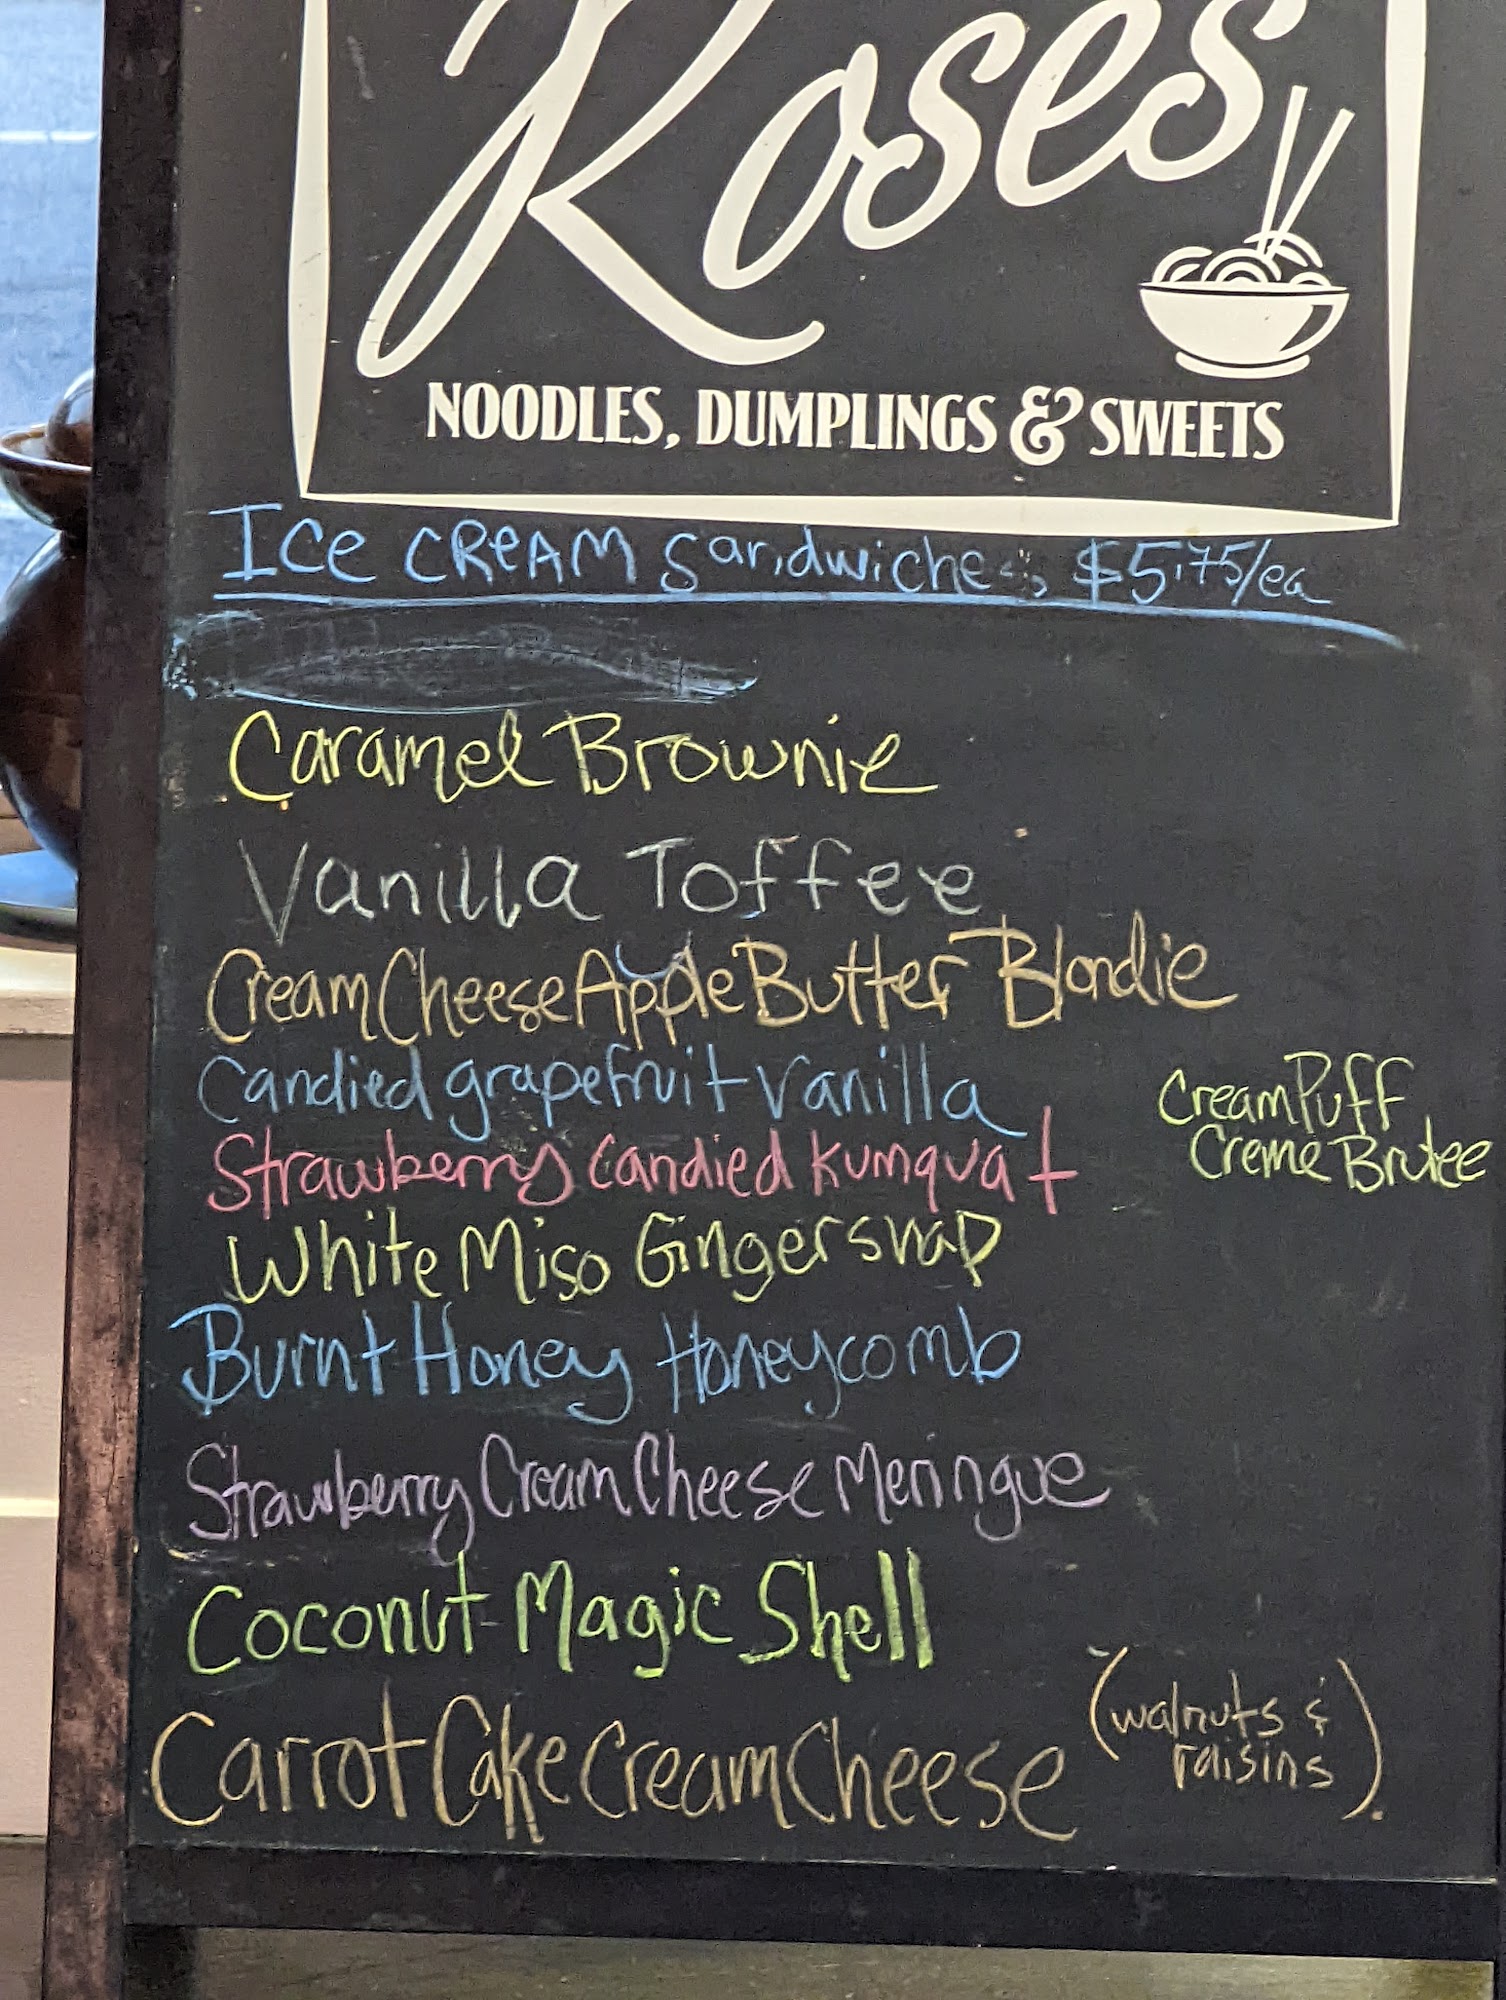 Roses
NOODLES, DUMPLINGS & SWEETS
Ice CREAM Sandwiches $5.75/ea
Caramel Brownie
Vanilla Toffee
Cream Cheese Apple Butter Blondie
Candied grapefruit Vanilla
Strawberry Candied Kumquat
Cream Puff
Creme Brulee
White Miso Gingersnap
Burnt Honey Honeycomb
Strawberry Cream Cheese Meringue
Coconut Magic Shell
Carrot Cake Cream Cheese
(walnuts &
raisins)